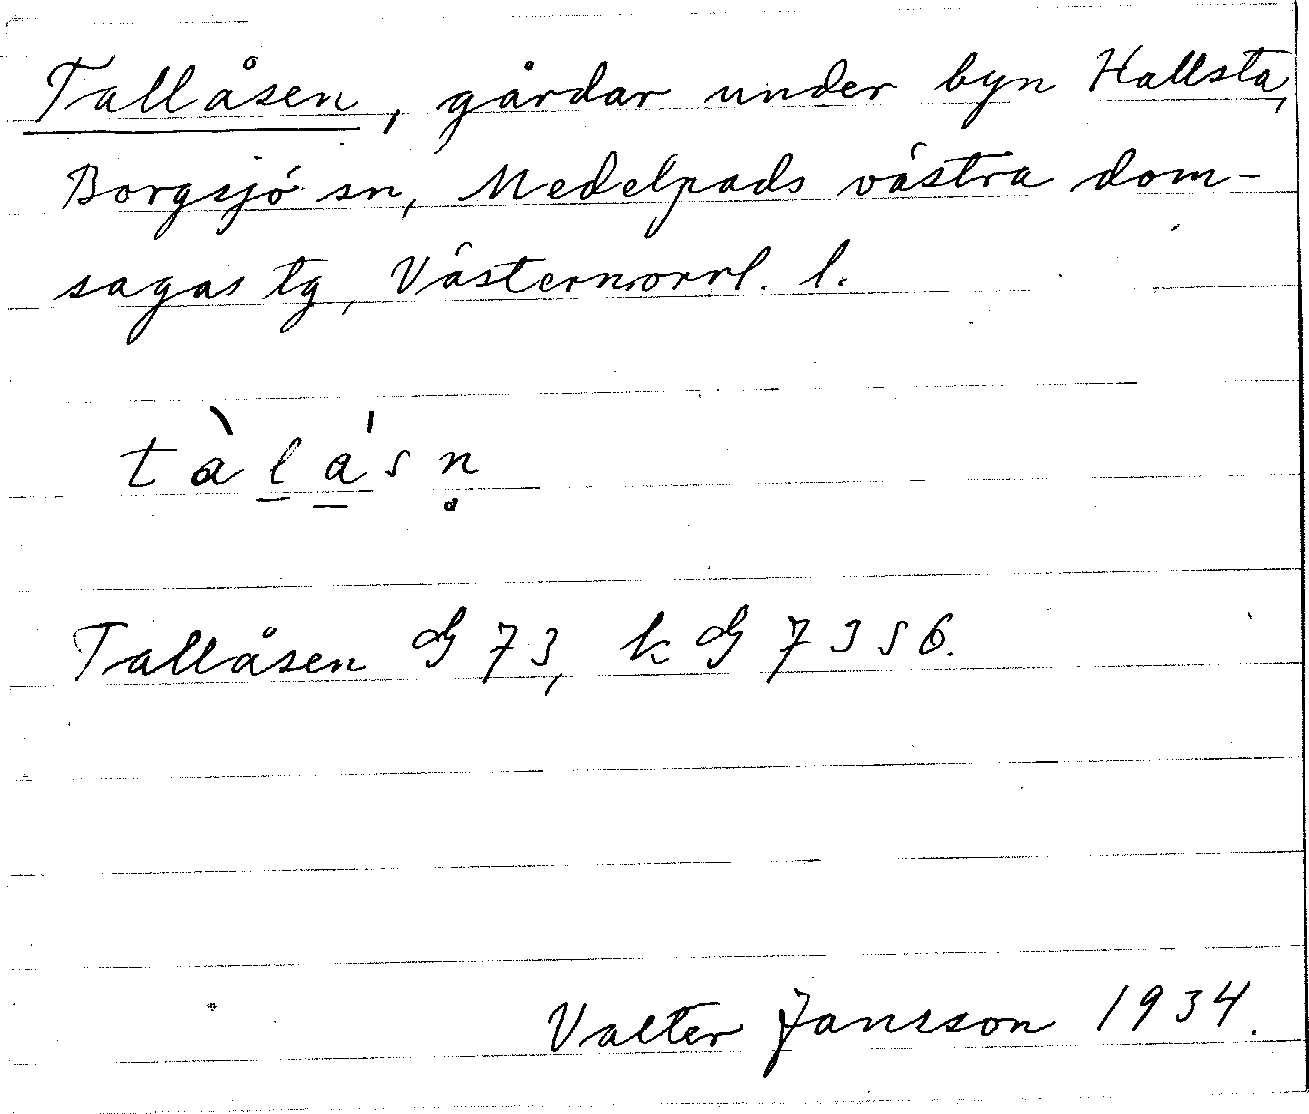 Tallåsen, gårdar under byn Hallsta,
Borgsjö sn, Medelpads västra dom-
sagas tg, Västernorrl. l.
tàlås n̥
Tallåsen G 73, k G 7356.
Valter Jansson 1934.